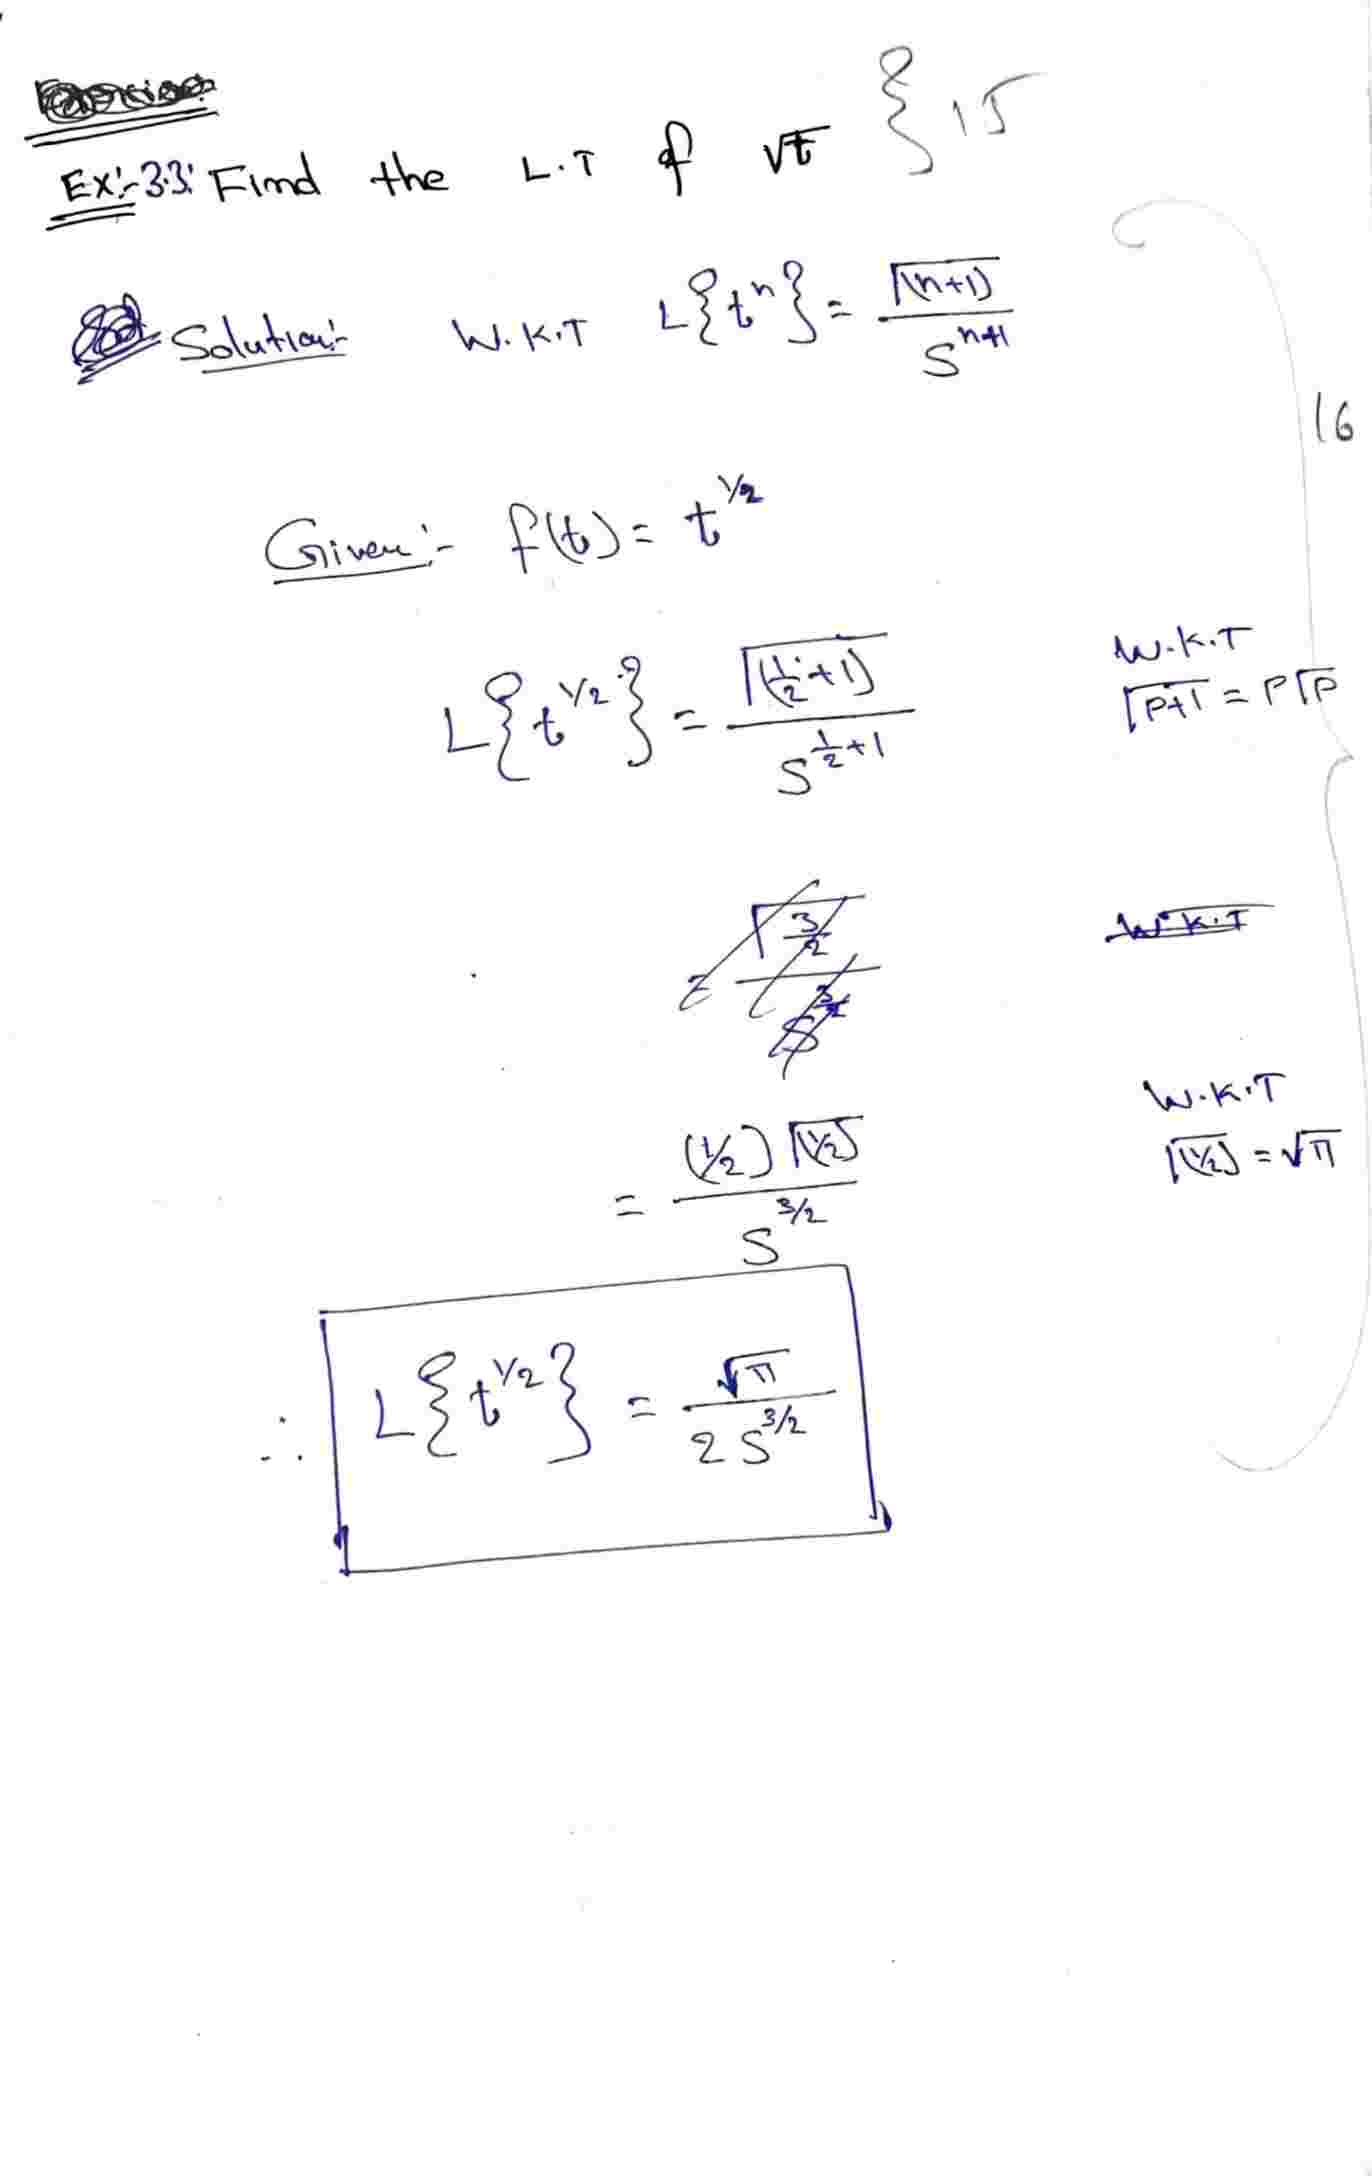 Exercise
Ex:- 3.3: Find the L.T of √t } 15
Solution:- W.K.T L{t^n} = Γ(n+1) / S^(n+1)
16
Given:- f(t) = t^(1/2)
L{t^(1/2)} = Γ(1/2+1) / S^(1/2+1)
W.K.T
Γp+1 = pΓp
= Γ3/2 / S^(3/2)
W.K.T
= (1/2) Γ(1/2) / S^(3/2)
W.K.T
Γ(1/2) = √π
∴ L{t^(1/2)} = √π / 2 S^(3/2)